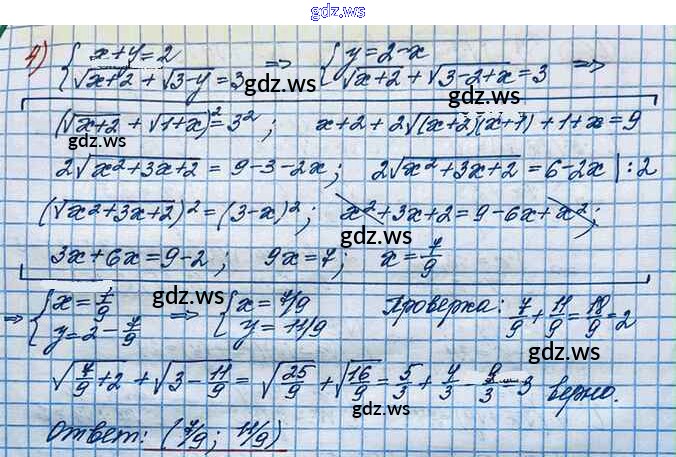 gdz.ws
4) { x+y=2 => { y=2-x
{ √x+2 + √3-y = 3 { √x+2 + √3-2+x = 3 =>
gdz.ws gdz.ws
(√x+2 + √1+x)² = 3²; x+2+2√(x+2)(x+1) + 1+x = 9
gdz.ws
2√x²+3x+2 = 9-3-2x; 2√x²+3x+2 = 6-2x |:2
(√x²+3x+2)² = (3-x)²; x²+3x+2 = 9-6x+x²;
gdz.ws
3x+6x = 9-2; 9x=7; x = 7/9
=> { x = 7/9 => { x = 7/9 Проверка: 7/9 + 11/9 = 18/9 = 2
gdz.ws
{ y = 2 - 7/9 { y = 11/9
gdz.ws
√7/9+2 + √3-11/9 = √25/9 + √16/9 = 5/3 + 4/3 - 9/3 = 3 верно.
gdz.ws
Ответ: (7/9; 11/9)
gdz.ws